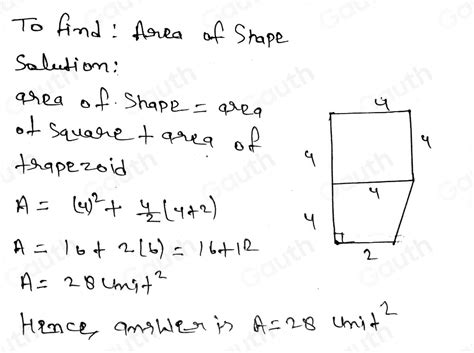 To find: Area of Shape
Solution:
area of shape = area
of square + area of
trapezoid
A = (4)² + 4/2 (4+2)
A = 16 + 2(6) = 16+12
A = 28 unit²
Hence, answer is A = 28 unit²
4
4
4
4
4
2
Gauth